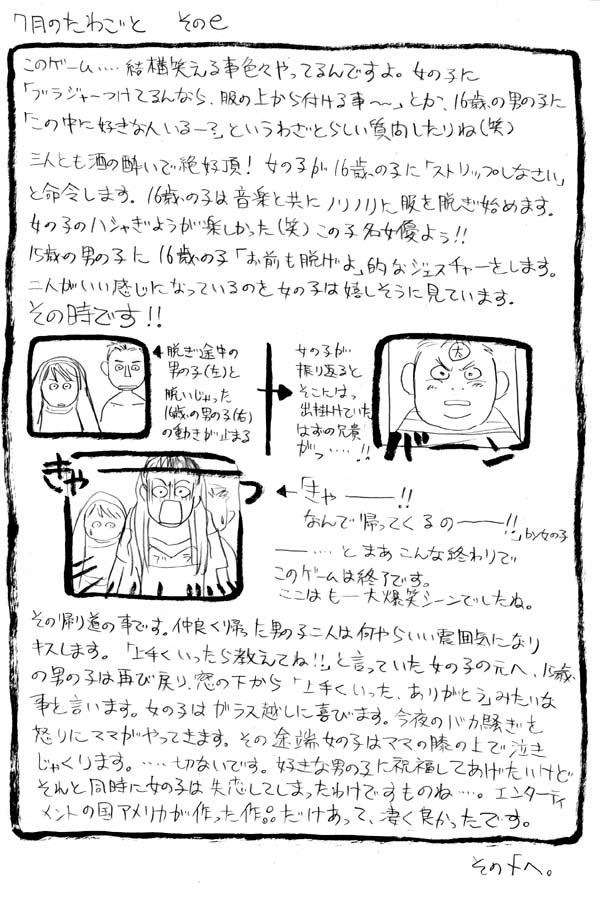 7月のたわごと　その e
このゲーム‥‥結構笑える事色々やってるんですよ。女の子に
「ブラジャーつけてるんなら、服の上から付ける事〜〜」とか、16歳の男の子に
「この中に好きな人いるー?」というわざとらしい質問したりね(笑)
三人とも酒の酔いで絶好頂！女の子が16歳の子に「ストリップしなさい」
と命令します。16歳の子は音楽と共にノリノリに服を脱ぎ始めます。
女の子のハシャぎようが楽しかった(笑)この子名女優よう!!
15歳の男の子に16歳の子「お前も脱げよ」的なジェスチャーをします。
二人がいい感じになっているのを女の子は嬉しそうに見ています。
その時です!!
←脱ぎ途中の
男の子(左)と
脱いじゃった
16歳の男の子(右)
の動きが止まる
女の子が
振り返ると
そこにはっ
出掛けていた
はずの兄貴
がっ‥‥!!
大
バーン
きゃ
っ
ブラ
←「きゃ――!!
なんで帰ってくるの――!!」by女の子
――‥‥とまあこんな終わりで
このゲームは終了です。
ここはも一大爆笑シーンでしたね。
その帰り道の事です。仲良く帰った男の子二人は何やらいい雰囲気になり
キスします。「上手くいったら教えてね!!」と言っていた女の子の元へ、15歳
の男の子は再び戻り、窓の下から「上手くいった、ありがとう」みたいな
事を言います。女の子はガラス越しに喜びます。今夜のバカ騒ぎを
怒りにママがやってきます。その途端女の子はママの膝の上で泣き
じゃくります。‥‥切ないです。好きな男の子に祝福してあげたいけど
それと同時に女の子は失恋してしまったわけですものね‥‥。エンターティ
メントの国アメリカが作った作品だけあって、凄く良かったです。
その f へ。